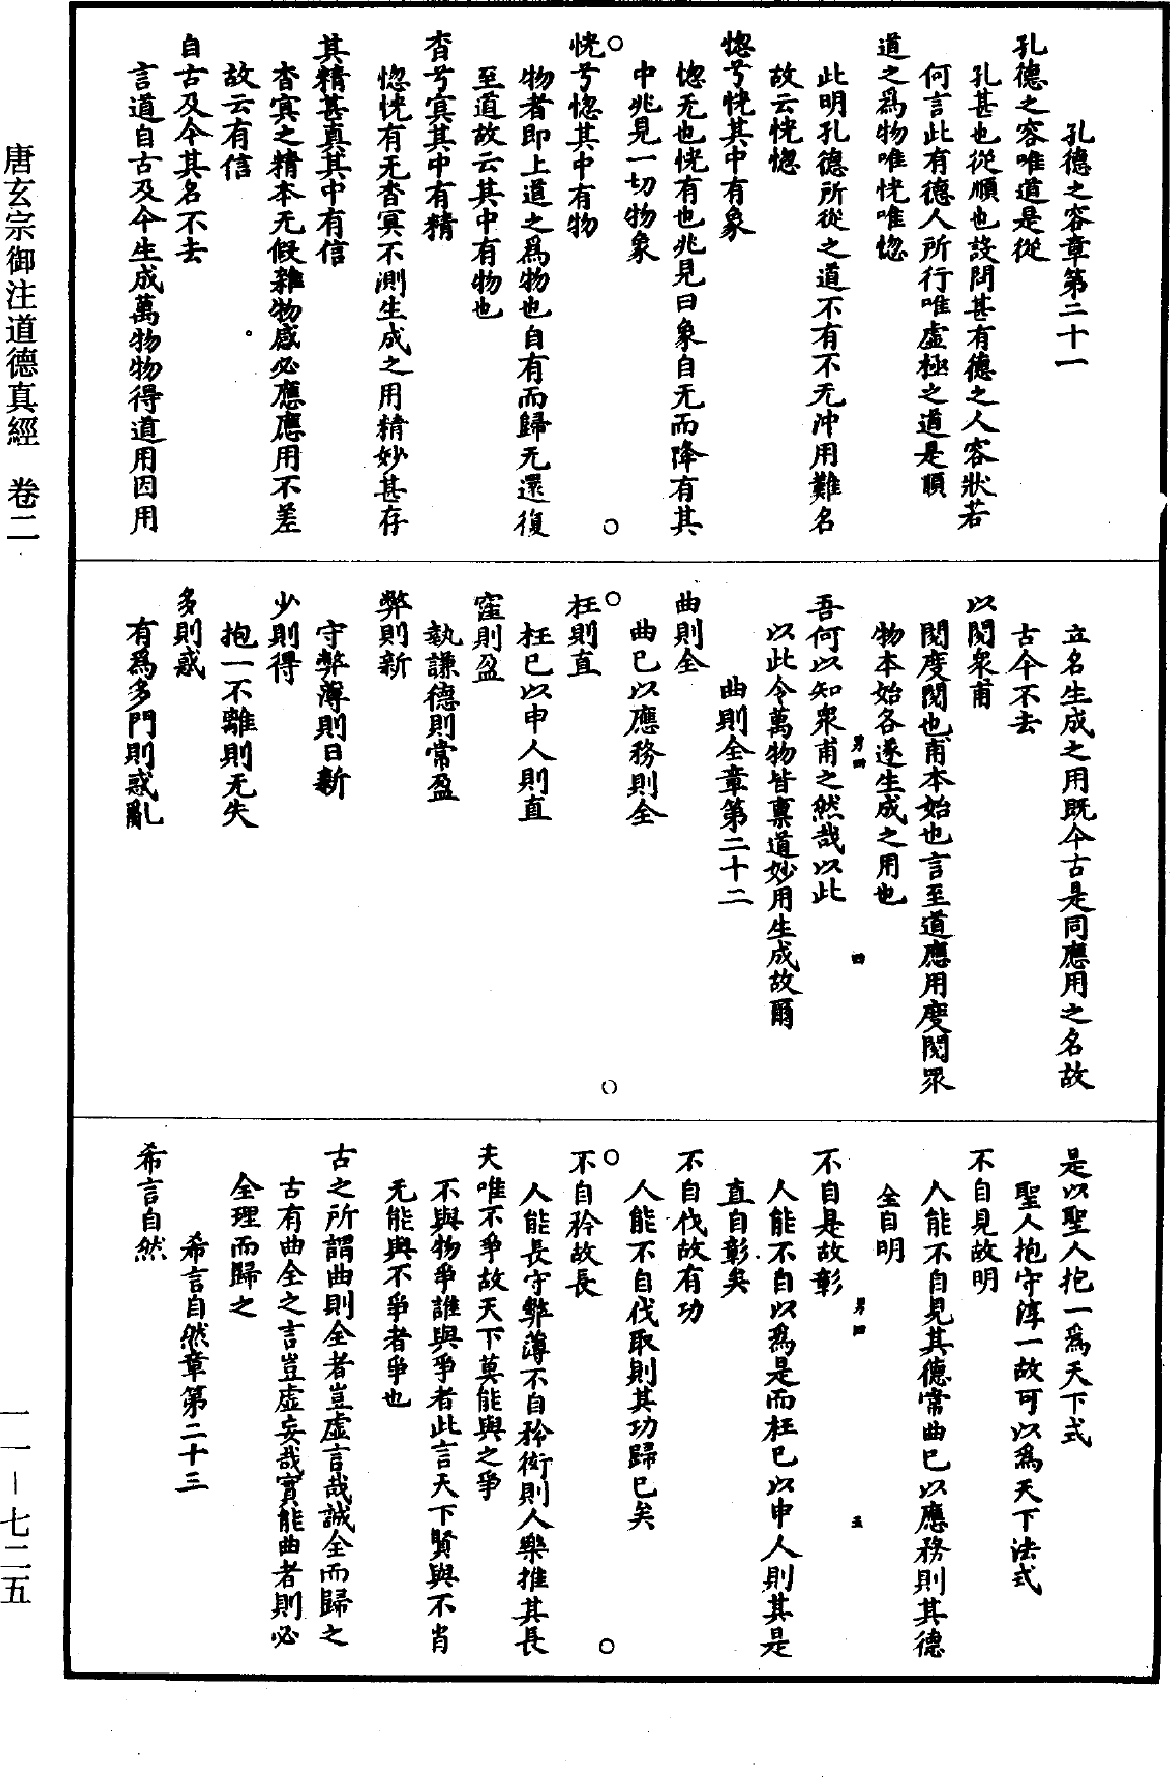 孔德之容章第二十一
孔德之容唯道是從
孔甚也從順也設問甚有德之人容狀若
何言此有德人所行唯虛極之道是順
道之爲物唯恍唯惚
此明孔德所從之道不有不无沖用難名
故云恍惚
惚兮恍其中有象
惚无也恍有也兆見曰象自无而降有其
中兆見一切物象
恍兮惚其中有物
物者即上道之爲物也自有而歸无還復
至道故云其中有物也
杳兮冥其中有精
惚恍有无杳冥不測生成之用精妙甚存
其精甚真其中有信
杳冥之精本无假雜物感必應應用不差
故云有信
自古及今其名不去
言道自古及今生成萬物物得道用因用
立名生成之用既今古是同應用之名故
古今不去
以閱衆甫
閱度閱也甫本始也言至道應用度閱眾
物本始各遂生成之用也
吾何以知衆甫之然哉以此
以此今萬物皆禀道妙用生成故爾
曲則全章第二十二
曲則全
曲己以應務則全
枉則直
枉己以申人則直
窪則盈
執謙德則常盈
弊則新
守弊薄則日新
少則得
抱一不離則无失
多則惑
有爲多門則惑亂
是以聖人抱一爲天下式
聖人抱守淳一故可以爲天下法式
不自見故明
人能不自見其德常曲己以應務則其德
全自明
不自是故彰
人能不自以爲是而枉己以申人則其是
直自彰矣
不自伐故有功
人能不自伐取則其功歸己矣
不自矜故長
人能長守弊薄不自矜衒則人樂推其長
夫唯不爭故天下莫能與之爭
不與物爭誰與爭者此言天下賢與不肖
无能與不爭者爭也
古之所謂曲則全者豈虛言哉誠全而歸之
古有曲全之言豈虛妄哉實能曲者則必
全理而歸之
希言自然章第二十三
希言自然
唐玄宗御注道德真經　卷二
一一—七二五